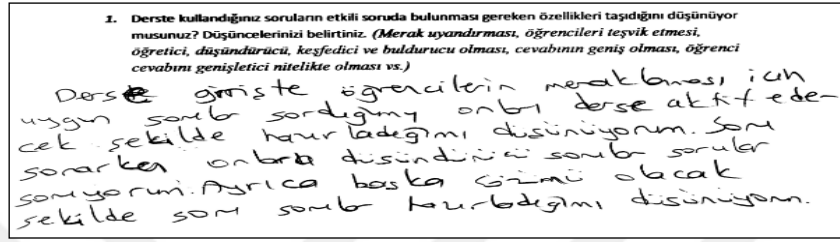 1. Derste kullandığınız soruların etkili soruda bulunması gereken özellikleri taşıdığını düşünüyor
musunuz? Düşüncelerinizi belirtiniz. (Merak uyandırması, öğrencileri teşvik etmesi,
öğretici, düşündürücü, keşfedici ve buldurucu olması, cevabının geniş olması, öğrenci
cevabını genişletici nitelikte olması vs.)
Derse girişte öğrencilerin meraklanması için
uygun sorular sorduğumu onları derse aktif ede-
cek şekilde hazırladığımı düşünüyorum. Soru
sorarken onlara düşündürücü sorular sorular
soruyorum. Ayrıca başka çözümü olacak
şekilde soru sorular hazırladığımı düşünüyorum.